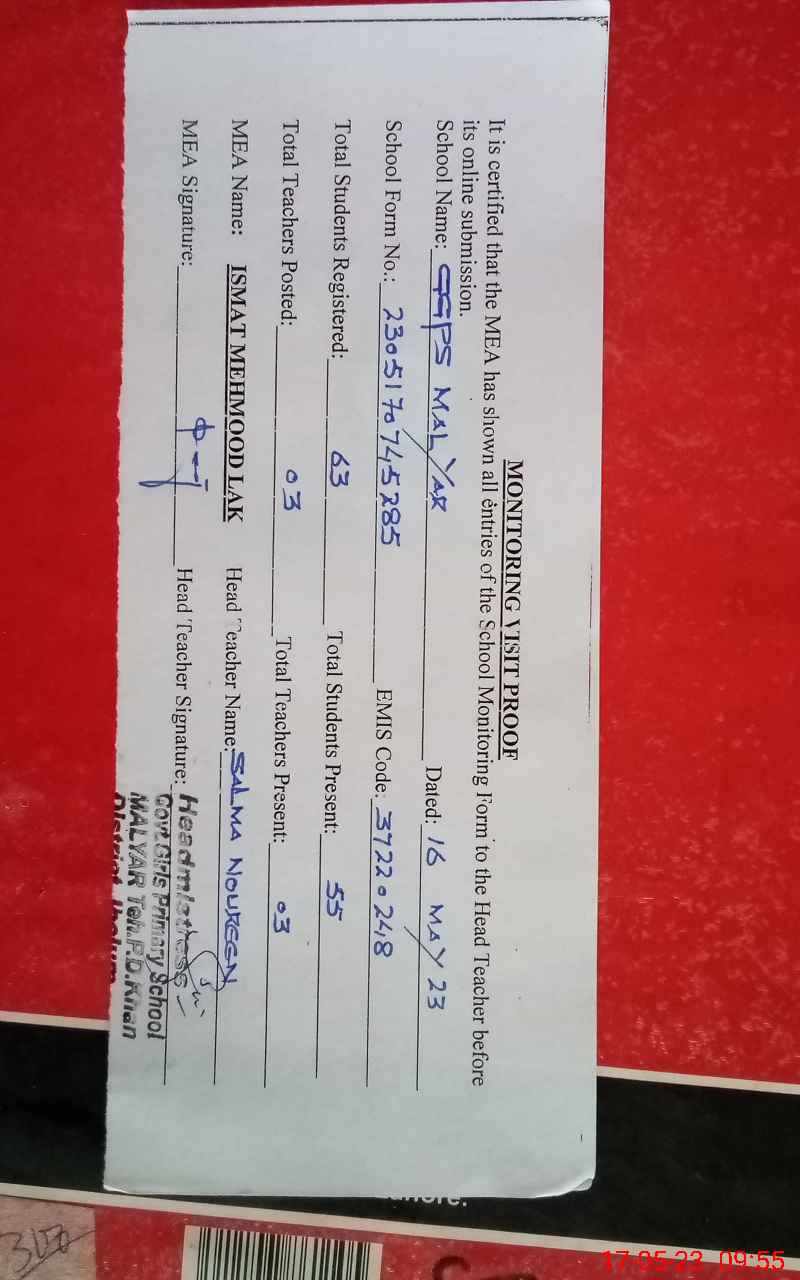 MONITORING VISIT PROOF
It is certified that the MEA has shown all entries of the School Monitoring Form to the Head Teacher before
its online submission.
School Name: GGPS MALYAR Dated: 16 MAY 23
School Form No.: 2305170745285 EMIS Code: 37220248
Total Students Registered: 63 Total Students Present: 55
Total Teachers Posted: 03 Total Teachers Present: 03
MEA Name: ISMAT MEHMOOD LAK Head Teacher Name: SALMA NOUREEN
MEA Signature: Head Teacher Signature:
Headmistress
Govt. Girls Primary School
MALYAR Teh. P.D. Khan
District Jhelum
17-05-23 09:55